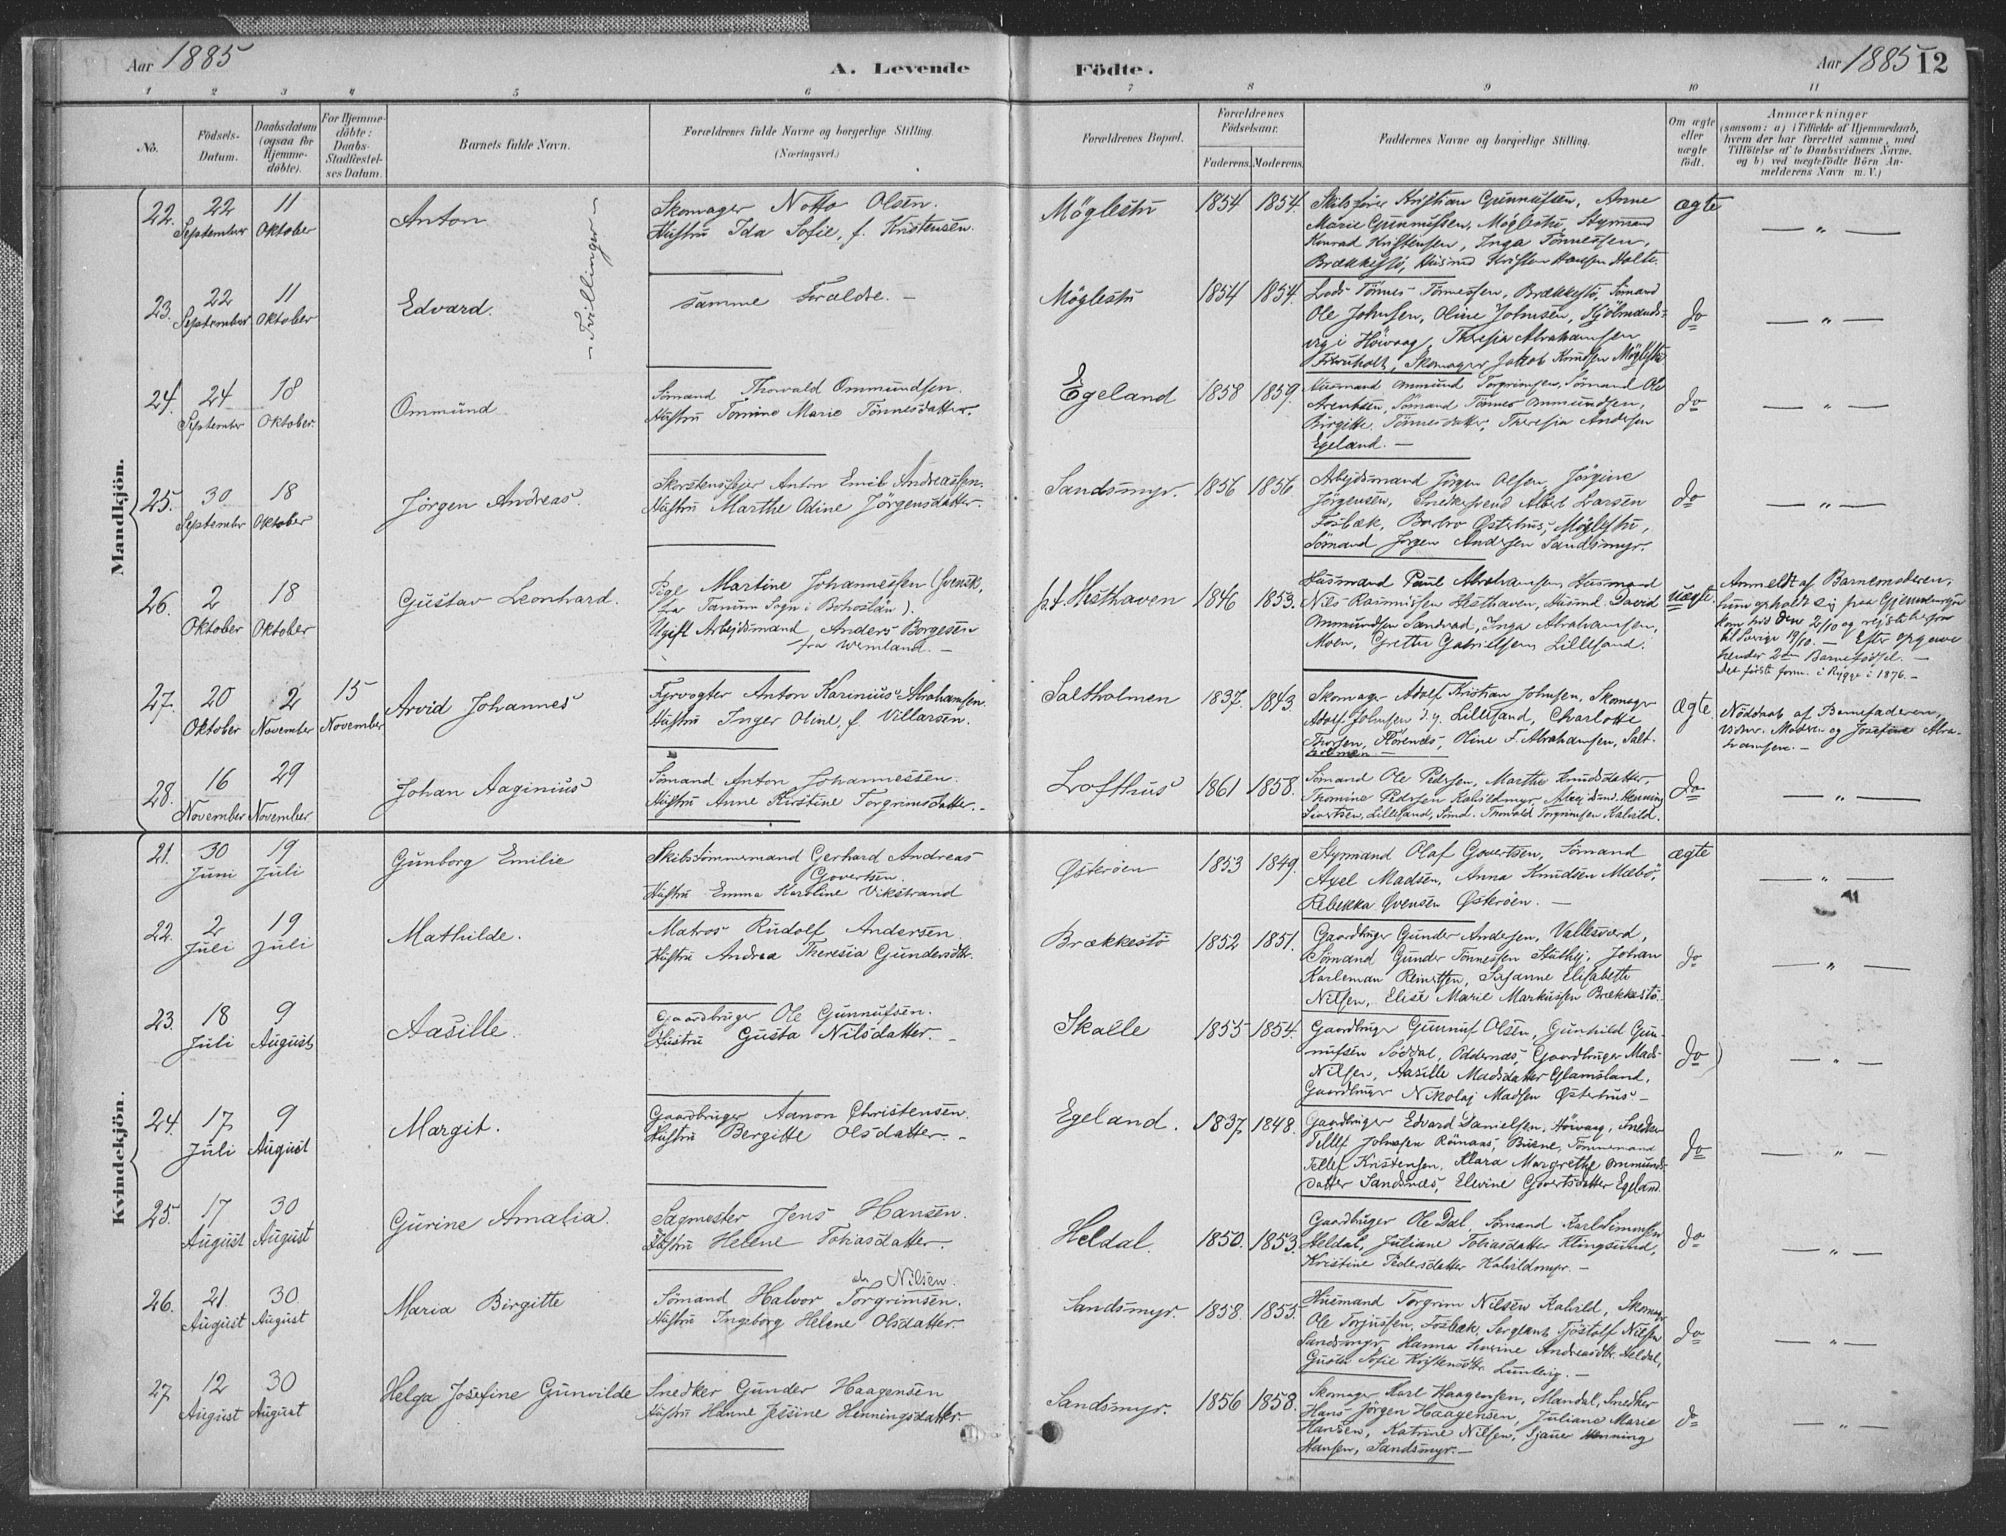 Aar 1885
A. Levende
Födte.
Aar 1885 12
1 2 3 4 5 6 7 8 9 10 11
No.
Födsels-
Datum.
Daabsdatum
(ogsaa for
Hjemme-
døbte).
For Hjemme-
døbte:
Daabs-
Stadfæstel-
ses Datum.
Barnets fulde Navn.
Forældrenes fulde Navne og borgerlige Stilling.
(Næringsvei.)
Forældrenes Bopæl.
Forældrenes
Födselsaar.
Faderens. Moderens.
Faddernes Navne og borgerlige Stilling.
Om ægte
eller
uægte
født.
Anmærkninger
(saasom: a) i Tilfælde af Hjemmedaab,
hvem der har forrettet samme, med
Tilføielse af to Daabsvidners Navne.
og b) ved uægtefödte Börn An-
melderens Navn m. V.)
Mandkjön.
22. 22 September 11 Oktober
Anton
- Tvillinger -
Skomager Notto Olsen.
Hustru Ida Sofie, f. Kristensen.
Möglestu 1854 1854.
Kristian Gunnufsen, Anne
Marie Gunnufsen, Möglestu, Styrmand
Konrad Kristensen, Inga Tönnessen,
Brækkestö, Husmd Kristen Hansen Holte.
ægte
— " —
23. 22 September 11 Oktober
Edvard.
samme Forældre. -
Möglestu 1854 1854.
Lods Tönnes Tönnessen, Brækkestö, Sömand
Ole Johnsen, Oline Johnsen, Kjölmands-
vig i Höivaag, Theresia Abrahamsen
Skomager Jakob Knudsen Möglestu
do
— " —
24. 24 September 18 Oktober.
Ommund
Sömand Thorvald Ommundsen.
Hustru Tomine Marie Tönnesdatter.
Egeland 1858 1859.
Husmand Ommund Torgrimsen, Sömand Ole
Arentsen, Sömand Tönnes Ommundsen,
Birgitte Tönnesdatter, Theresia Andersen
Egeland. -
do
— " —
25. 30 September 18 Oktober
Jörgen Andreas.
Skorstensfejer Anton Emil Andreassen.
Hustru Marthe Odine Jörgensdatter.
Sandsmyr. 1856 1856.
Arbejdsmand Jörgen Olsen, Jörgine
Jörgensen, Snedkersvend Albert Larsen
Fosbæk, Barbro Østerhus, Möglestu,
Sömand Jörgen Andersen Sandsmyr.
do
— " —
26. 2 Oktober 18 Oktober
Gustav Leonhard.
Pige Martine Johannessen (svensk,
fra Tanum Sogn i Bohuslän).
Ugift Arbejdsmand Anders Borgesen
fra Wermland. -
p.t. Hesthaven 1846 1853.
Husmand Paul Abrahamsen, Husmand
Nils Rasmussen Hesthaven, Husmd. David
Ommundsen Sandvad, Inga Abrahamsen,
Moen, Grethe Gabrielsen Lillesand.
Uægte.
Anmeldt af Barnemoderen,
hun opholdt sig paa
kom hid den 2/10 og rejste herfra
til Sverige 19/10. - Efter opgivende
hendes 2den Barnefødsel. -
Det første i Rygge i 1876. -
27. 20 Oktober 2 November 15 November
Arvid Johannes
Fyrvogter Anton Karinius Abrahamsen.
Hustru Inger Oline, f. Villarsen.
Saltholmen 1837. 1843.
Skomager Adolf Kristian Johnsen, Skomager
Adolf Johnsen d.y. Lillesand, Charlotte
Thorsen, Florenæs, Oline F. Abrahamsen, Salt-
holmen -
ægte.
Nöddaab af Barnefaderen,
Vidner. Moderen og Josefine Abra-
hamsen. -
28. 16 November 29 November.
Johan Aaginius
Sömand Anton Johannessen.
Hustru Anne Kirstine Torgrimsdatter. -
Lofthus 1861 1858.
Sömand Ole Pedersen, Marthe Knudsdatter,
Thomine Pedersen Kalvildmyr, Arbejdsmd. Henning
Sivertsen, Lillesand, Sömd. Thorvald Torgrimsen Kalvild.
do
— " —
Kvindekjön.
21. 30 Juni 19 Juli
Gunborg Emilie
Skibstömmermand Gerhard Andreas
Govertsen.
Hustru Emma Karoline Vikstrand
Østeröen 1853 1849.
Styrmand Olaf Govertsen, Sömand
Axel Madsen, Anna Knudsen Mæbö,
Rebekka Evensen Østeröen. -
ægte
— " —
22. 2 Juli 19 Juli
Mathilde.
Matros Rudolf Andersen.
Hustru Andrea Theresia Gundersdtr.
Brækkestö 1852 1851.
Gaardbruger Gunder Andersen, Vallesværd,
Sömand Gunder Tönnessen Johan
Karleman Reinertsen, Susanne Elisabeth
Nilsen, Elise Marie Markussen Brækkestö.
do
— " —
23. 18 Juli 9 August
Aasille.
Gaardbruger Ole Gunnufsen.
Hustru Gusta Nilsdatter. -
Skalle 1855 1854.
Gaardbruger Gunnuf Olsen, Gunhild Gun-
nufsen Söddal, Oddernæs, Gaardbruger Mads
Nilsen, Aasille Madsdatter Glamsland,
Gaardbruger Nikolaj Madsen Østerhus -
do
— " —
24. 17 Juli 9 August
Margit.
Gaardbruger Aanon Christensen.
Hustru Bergitte Olsdatter. -
Egeland. 1837 1848.
Gaardbruger Edvard Danielsen, Höivaag, Snedker
Tellef Johnsen Römaas, Tömmermand
Tellef Kristensen, Klara Margrethe Ommunds-
datter Sandsnæs, Elevine Govertsdatter Egeland.
do
— " —
25. 17 August 30 August
Gurine Amalia.
Sagmester Jens Hansen.
Hustru Helene Tobiasdatter.
Heldal. 1850. 1853.
Gaardbruger Ole Dal, Sömand Karl Simonsen
Heldal, Juliane Tobiasdatter Klingsund,
Kristine Pedersdatter Kalvildmyr. -
do
— " —
26. 21. August 30 August
Maria Birgitte
Nilsen.
Sömand Halvor Torgrimsen.
Hustru Ingeborg Helene Olsdatter.
Sandsmyr. 1858. 1855.
Husmand Torgrim Nilsen Kalvild, Skomager
Ole Torjussen, Fosbæk, Sergeant Tjöstolf Nilsen
Sandsmyr, Hanna Andreasdtr. Heldal,
Gusta Sofie Kristensdtr. Lundevig. -
do
— " —
27. 12 August 30 August
Helga Josefine Gunvilde
Snedker Gunder Haagensen
Hustru Hanne Jessine Henningsdatter.
Sandsmyr. 1856 1858.
Skomager Karl Haagensen, Mandal, Snedker
Hans Jörgen Haagensen, Juliane Marie
Hansen, Katrine Nilsen, Sjauer Henning
Hansen, Sandsmyr. -
do
— " —